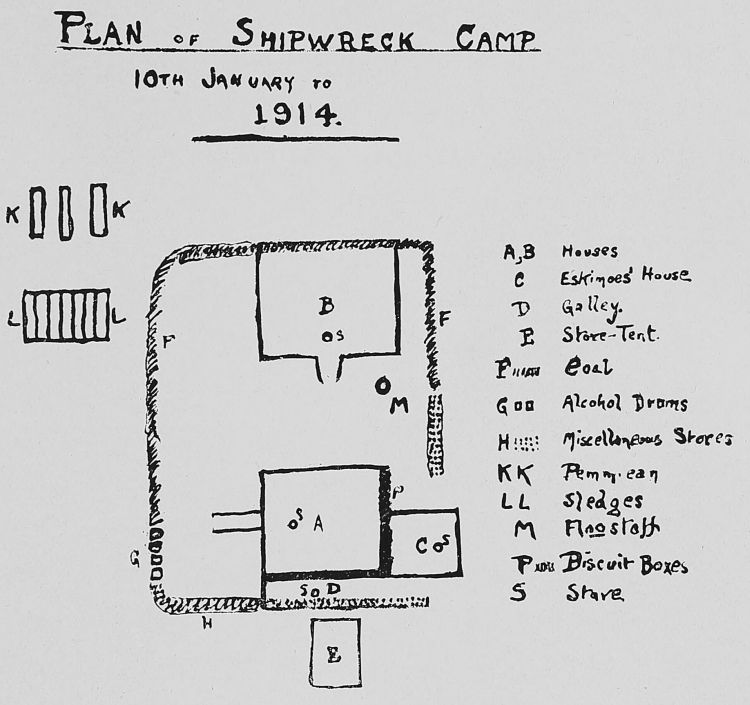 PLAN OF SHIPWRECK CAMP
10TH JANUARY TO
1914.
K K
L L
F
B
S
F
M
S A
P
C S
G
S D
H
E
A,B Houses
C Eskimoes' House
D Galley.
E Store-Tent.
F Coal
G Alcohol Drums
H Miscellaneous Stores
KK Pemmican
LL Sledges
M Flagstaff
P Biscuit Boxes
S Stove